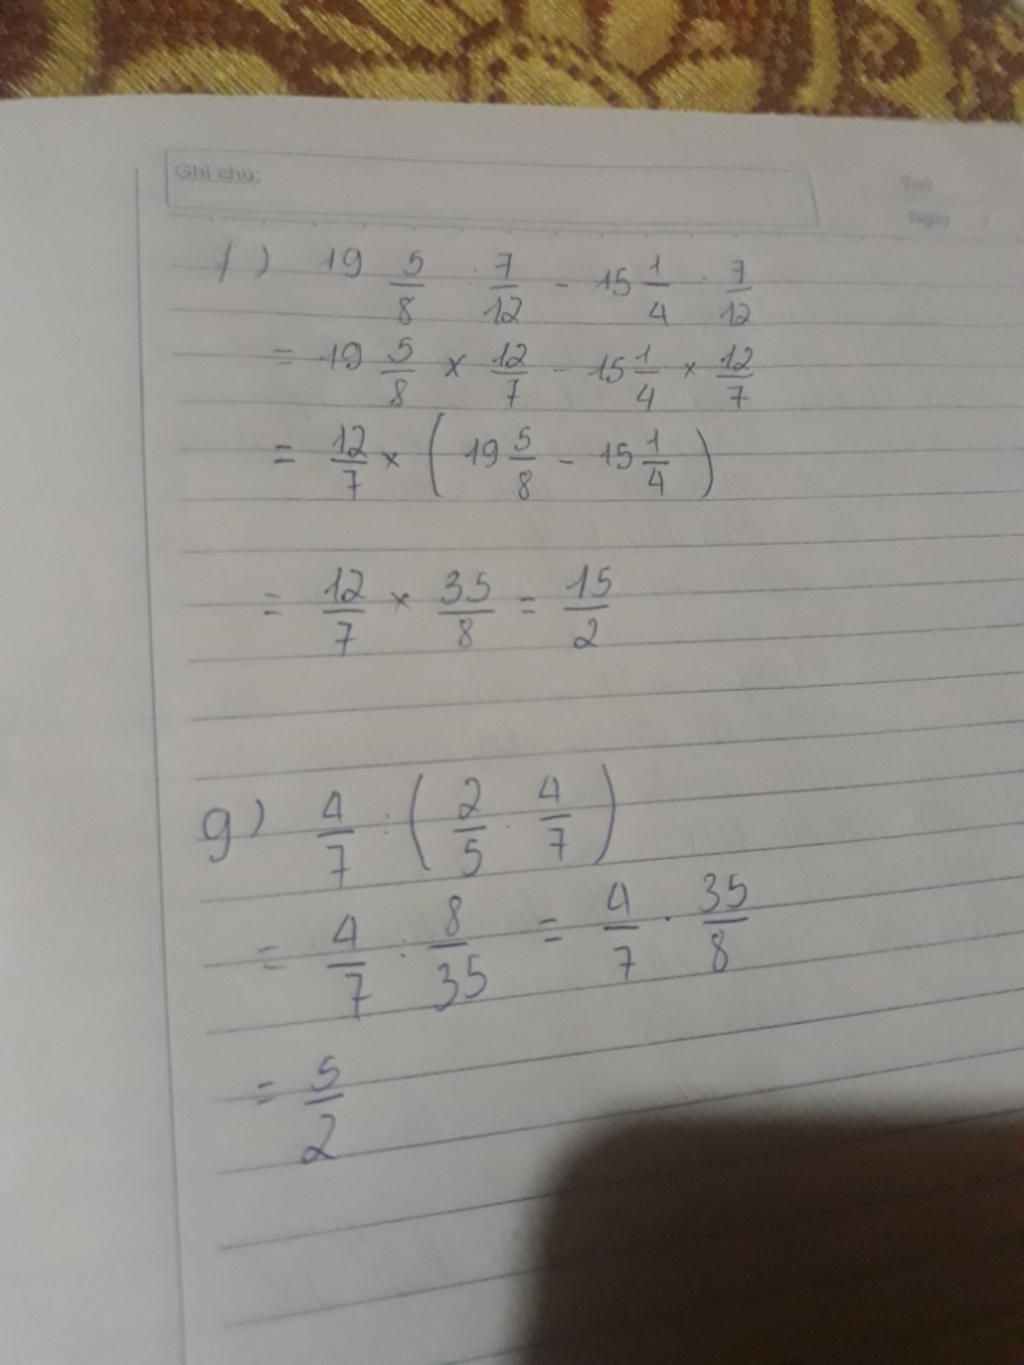 Ghi chú:
Thứ
Ngày
f) 19 5/8 : 7/12 - 15 1/4 : 7/12
= 19 5/8 × 12/7 - 15 1/4 × 12/7
= 12/7 × ( 19 5/8 - 15 1/4 )
= 12/7 × 35/8 = 15/2
g) 4/7 : ( 2/5 . 4/7 )
= 4/7 : 8/35 = 4/7 . 35/8
= 5/2